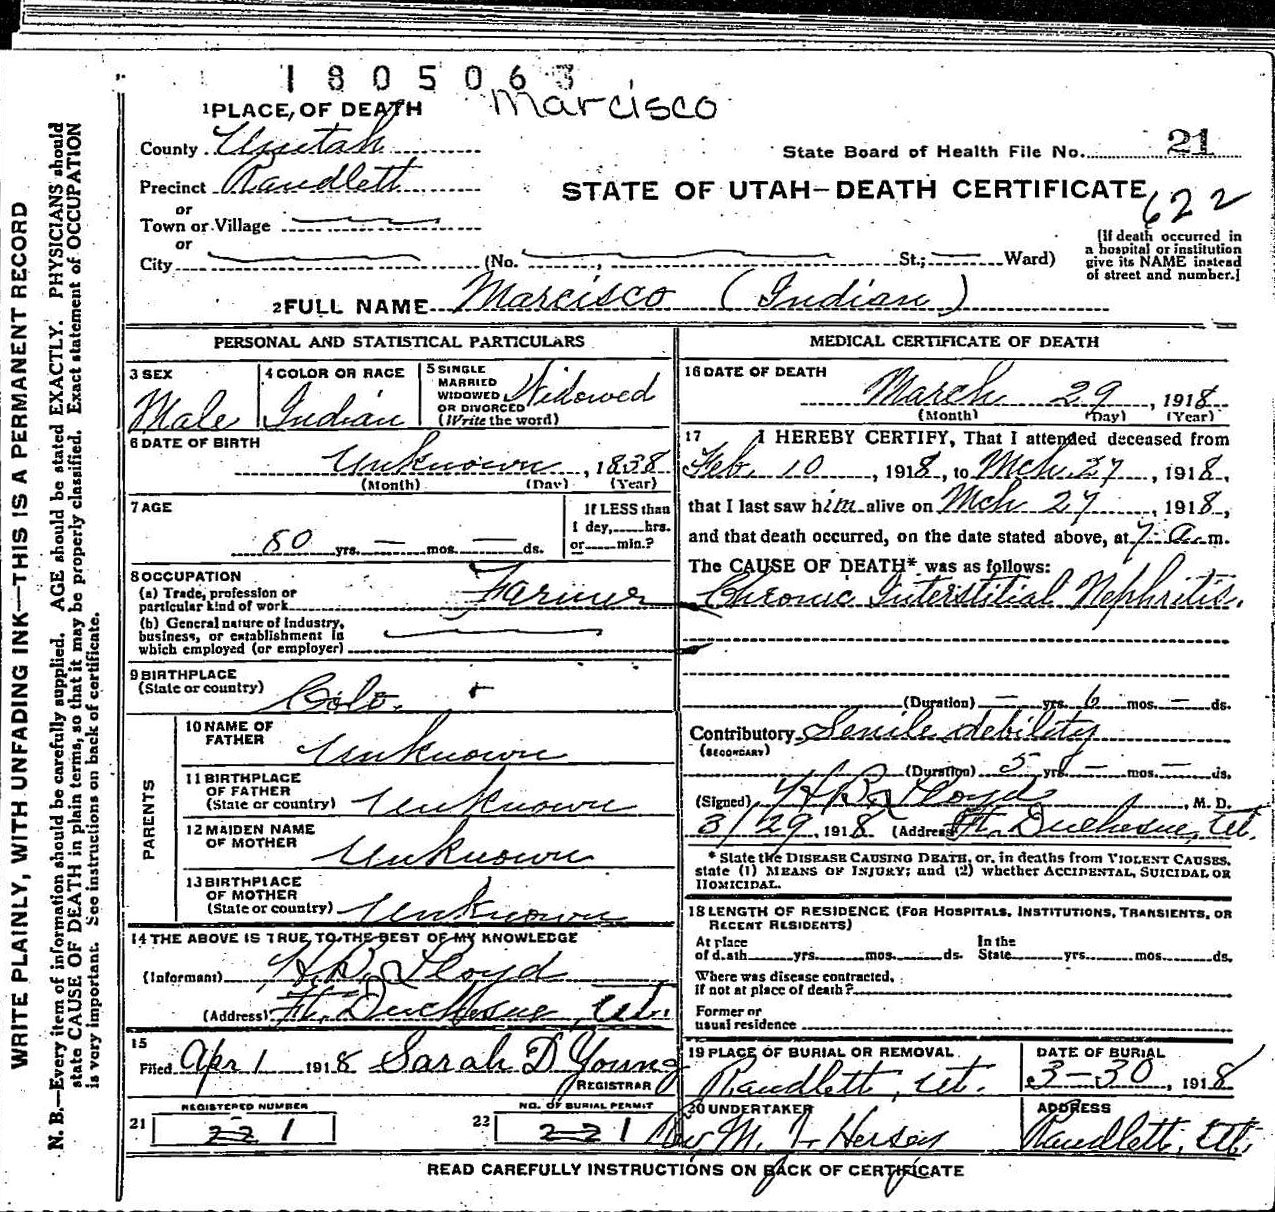 1805063
Marcisco
1 PLACE OF DEATH
County Uintah
State Board of Health File No. 21
Precinct Randlett
STATE OF UTAH—DEATH CERTIFICATE
622
or
Town or Village
or
City (No. , St.; Ward)
(If death occurred in
a hospital or institution
give its NAME instead
of street and number.)
2 FULL NAME Marcisco (Indian)
PERSONAL AND STATISTICAL PARTICULARS
3 SEX
Male
4 COLOR OR RACE
Indian
5 SINGLE
MARRIED
WIDOWED
OR DIVORCED
(Write the word)
Widowed
6 DATE OF BIRTH
Unknown, 1838
(Month) (Day) (Year)
7 AGE
80 yrs. — mos. — ds.
If LESS than
1 day, hrs.
or min.?
8 OCCUPATION
(a) Trade, profession or
particular kind of work Farmer
(b) General nature of industry,
business, or establishment in
which employed (or employer)
9 BIRTHPLACE
(State or country) Colo.
PARENTS
10 NAME OF
FATHER Unknown
11 BIRTHPLACE
OF FATHER
(State or country) Unknown
12 MAIDEN NAME
OF MOTHER Unknown
13 BIRTHPLACE
OF MOTHER
(State or country) Unknown
14 THE ABOVE IS TRUE TO THE BEST OF MY KNOWLEDGE
(Informant) H.B. Lloyd
(Address) Ft. Duchesne, Ut.
15
Filed Apr 1 1918 Sarah D Young
REGISTRAR
21 REGISTERED NUMBER
221
22 NO. OF BURIAL PERMIT
221
MEDICAL CERTIFICATE OF DEATH
16 DATE OF DEATH
March 29, 1918
(Month) (Day) (Year)
17 I HEREBY CERTIFY, That I attended deceased from
Feb. 10, 1918, to Mch 27, 1918,
that I last saw him alive on Mch 27, 1918,
and that death occurred, on the date stated above, at 7 a.m.
The CAUSE OF DEATH* was as follows:
Chronic Interstitial Nephritis.
(Duration) — yrs. 6 mos. — ds.
Contributory Senile debility
(SECONDARY)
(Duration) 5 yrs — mos. — ds.
(Signed) H.B. Lloyd, M. D.
3/29, 1918 (Address) Ft. Duchesne, Ut.
* State the DISEASE CAUSING DEATH, or, in deaths from VIOLENT CAUSES,
state (1) MEANS OF INJURY; and (2) whether ACCIDENTAL, SUICIDAL OR
HOMICIDAL.
18 LENGTH OF RESIDENCE (FOR HOSPITALS, INSTITUTIONS, TRANSIENTS, OR
RECENT RESIDENTS)
At place In the
of death yrs. mos. ds. State yrs. mos. ds.
Where was disease contracted,
if not at place of death?
Former or
usual residence
19 PLACE OF BURIAL OR REMOVAL
Randlett, Ut.
DATE OF BURIAL
3-30, 1918
20 UNDERTAKER
M. J. Hersey
ADDRESS
Randlett, Ut.
READ CAREFULLY INSTRUCTIONS ON BACK OF CERTIFICATE
WRITE PLAINLY, WITH UNFADING INK—THIS IS A PERMANENT RECORD
N. B.—Every item of information should be carefully supplied. AGE should be stated EXACTLY. PHYSICIANS should
state CAUSE OF DEATH in plain terms, so that it may be properly classified. Exact statement of OCCUPATION
is very important. See instructions on back of certificate.